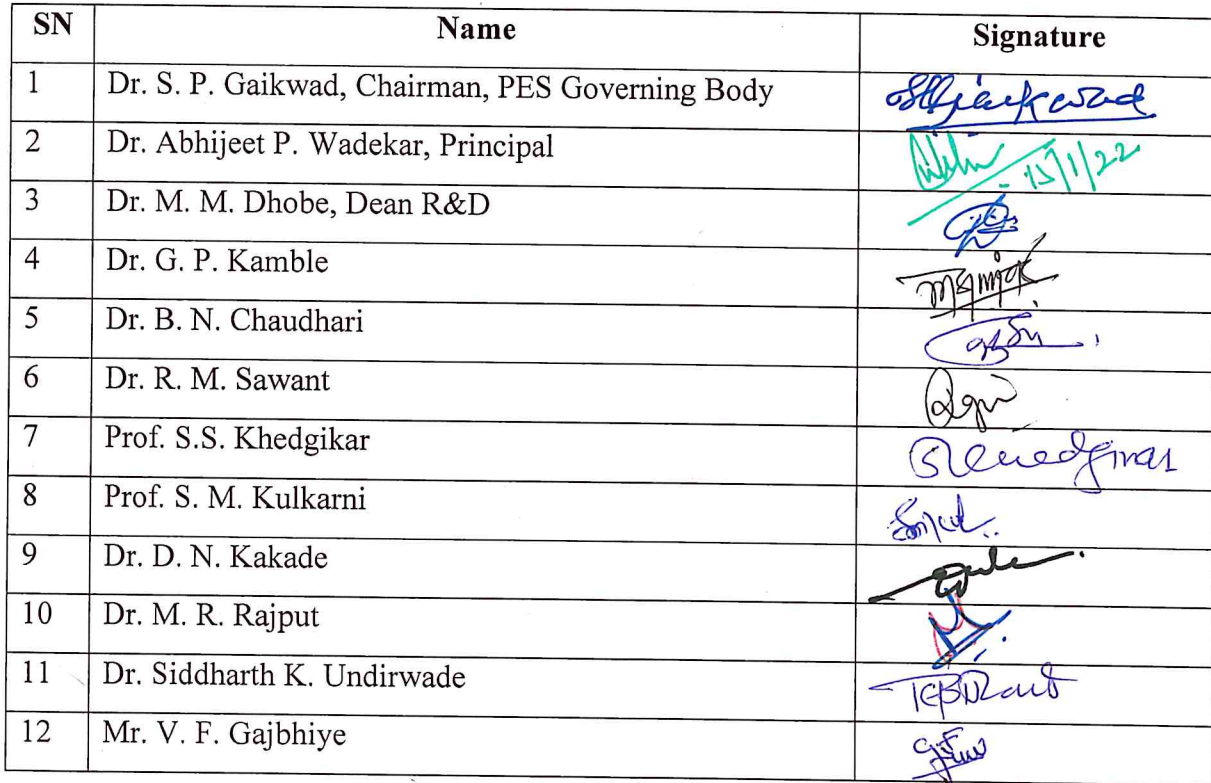 SN Name Signature
1 Dr. S. P. Gaikwad, Chairman, PES Governing Body
2 Dr. Abhijeet P. Wadekar, Principal 15/1/22
3 Dr. M. M. Dhobe, Dean R&D
4 Dr. G. P. Kamble
5 Dr. B. N. Chaudhari
6 Dr. R. M. Sawant
7 Prof. S.S. Khedgikar
8 Prof. S. M. Kulkarni
9 Dr. D. N. Kakade
10 Dr. M. R. Rajput
11 Dr. Siddharth K. Undirwade
12 Mr. V. F. Gajbhiye